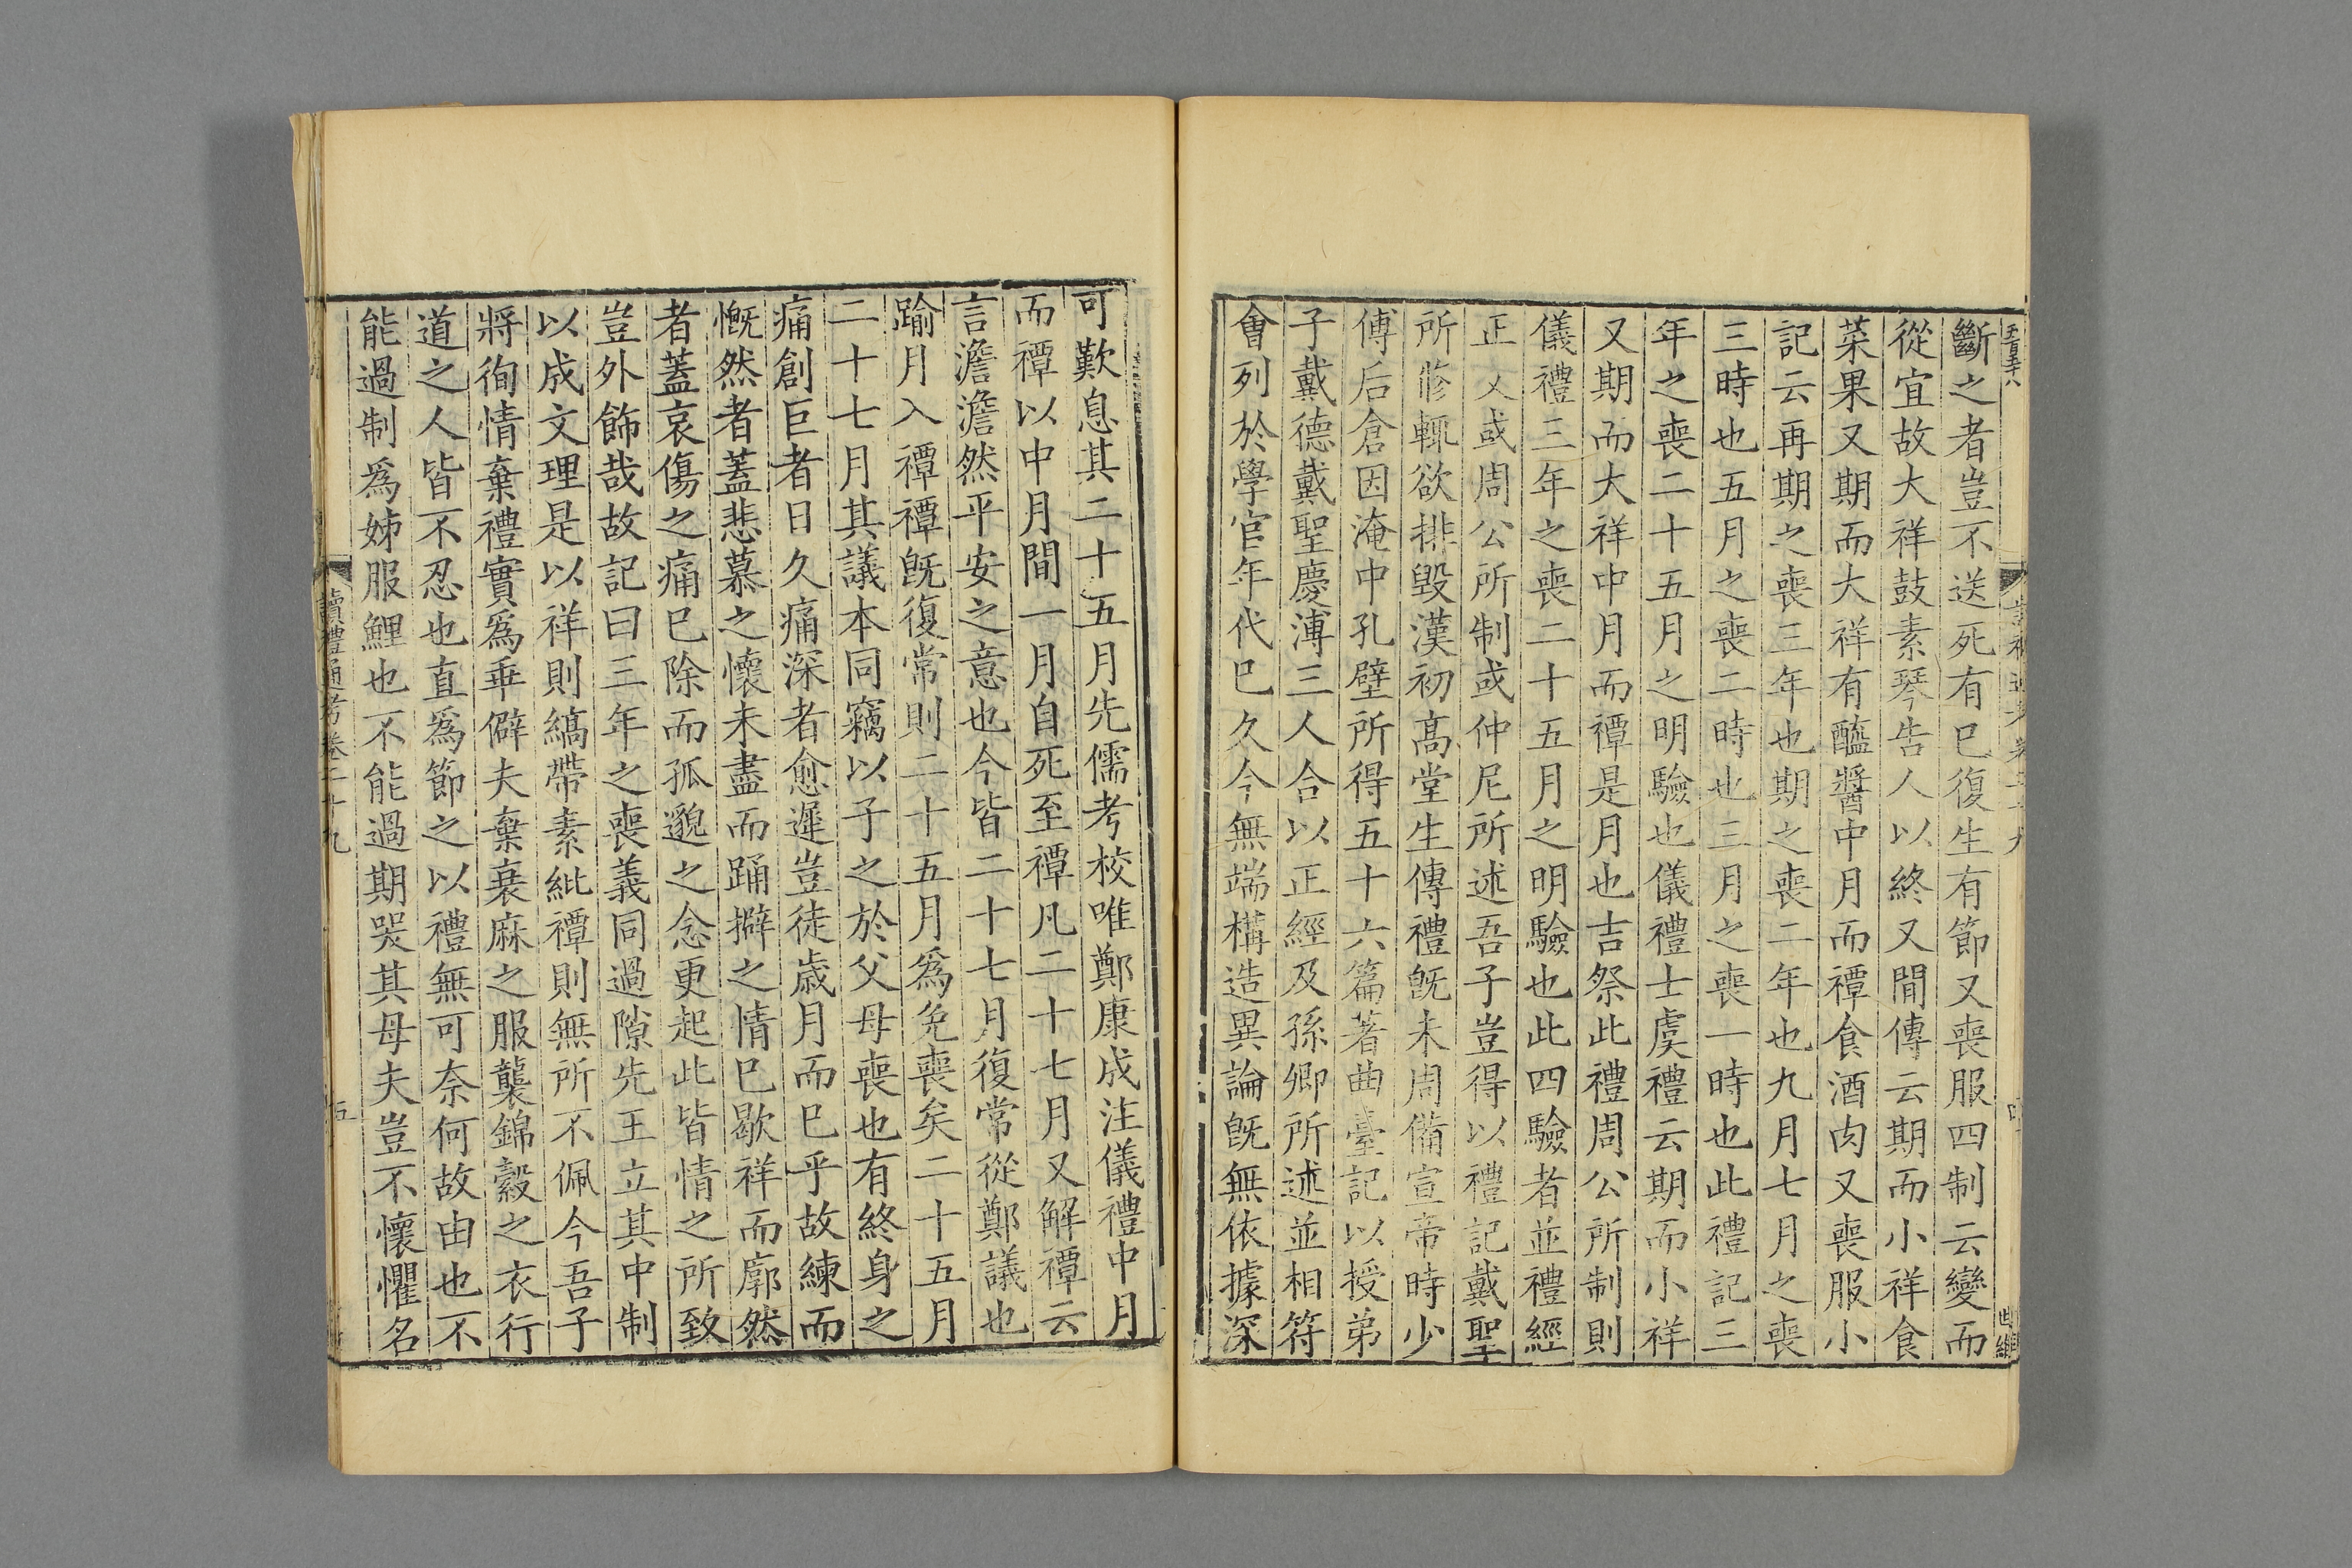 斷之者豈不送死有已復生有節又喪服四制云變而
從宜故大祥鼓素琴告人以終又間傳云期而小祥食
菜果又期而大祥有醯醬中月而禫食酒肉又喪服小
記云再期之喪三年也期之喪二年也九月七月之喪
三時也五月之喪二時也三月之喪一時也此禮記三
年之喪二十五月之明驗也儀禮士虞禮云期而小祥
又期而大祥中月而禫是月也吉祭此禮周公所制則
儀禮三年之喪二十五月之明驗也此四驗者並禮經
正文或周公所制或仲尼所述吾子豈得以禮記戴聖
所修輒欲排毀漢初高堂生傳禮既未周備宣帝時少
傅后倉因淹中孔壁所得五十六篇著曲臺記以授弟
子戴德戴聖慶溥三人合以正經及孫卿所述並相符
會列於學官年代已久今無端構造異論既無依據深
可歎息其二十五月先儒考校唯鄭康成注儀禮中月
而禫以中月間一月自死至禫凡二十七月又解禫云
言澹澹然平安之意也今皆二十七月復常從鄭議也
踰月入禫禫既復常則二十五月爲免喪矣二十五月
二十七月其議本同竊以子之於父母喪也有終身之
痛創巨者日久痛深者愈遲豈徒歲月而已乎故練而
慨然者蓋悲慕之懷未盡而踊擗之情已歇祥而廓然
者蓋哀傷之痛已除而孤邈之念更起此皆情之所致
豈外飾哉故記曰三年之喪義同過隙先王立其中制
以成文理是以祥則縞帶素紕禫則無所不佩今吾子
將徇情棄禮實爲乖僻夫棄衰麻之服襲錦縠之衣行
道之人皆不忍也直爲節之以禮無可奈何故由也不
能過制爲姊服鯉也不能過期哭其母夫豈不懷懼名
讀禮通考卷二十九
五